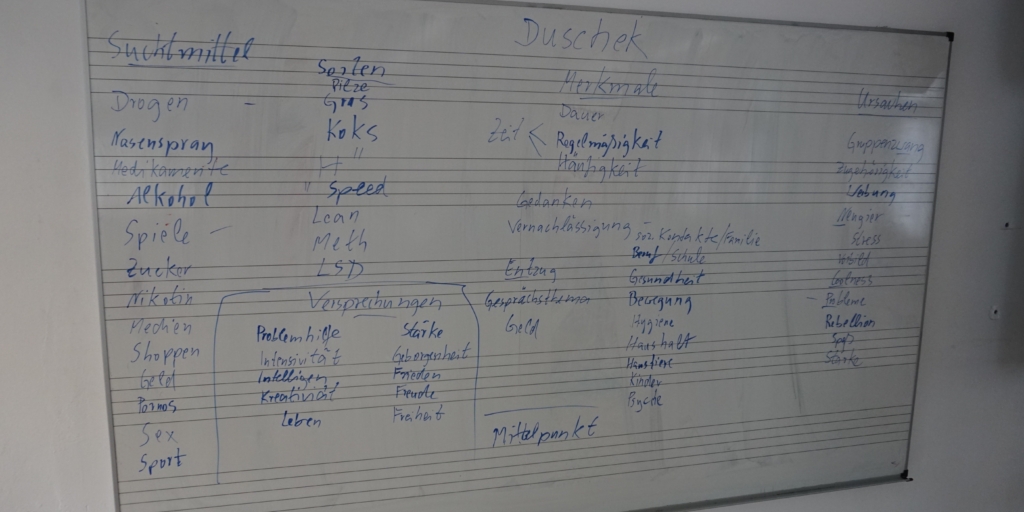 Duschek
Suchtmittel
Drogen -
Nasenspray
Medikamente
Alkohol
Spiele -
Zucker
Nikotin
Medien
Shoppen
Geld
Pornos
Sex
Sport
Sorten
Pilze
Gras
Koks
H "
" Speed
Lean
Meth
LSD
Versprechungen
Problemhilfe Stärke
Intensivität Geborgenheit
Frieden
Kreativität Freude
Leben Freiheit
Merkmale
Dauer
Zeit < Regelmäßigkeit
Häufigkeit
Gedanken
Vernachlässigung soz. Kontakte/Familie
Beruf/Schule
Entzug Gesundheit
Gesprächsthema Bewegung
Geld Hygiene
Haushalt
Haustiere
Kinder
Psyche
Mittelpunkt
Ursachen
Gruppenzwang
Zugehörigkeit
Werbung
Neugier
Stress
- Probleme
Rebellion
Spaß
Stärke